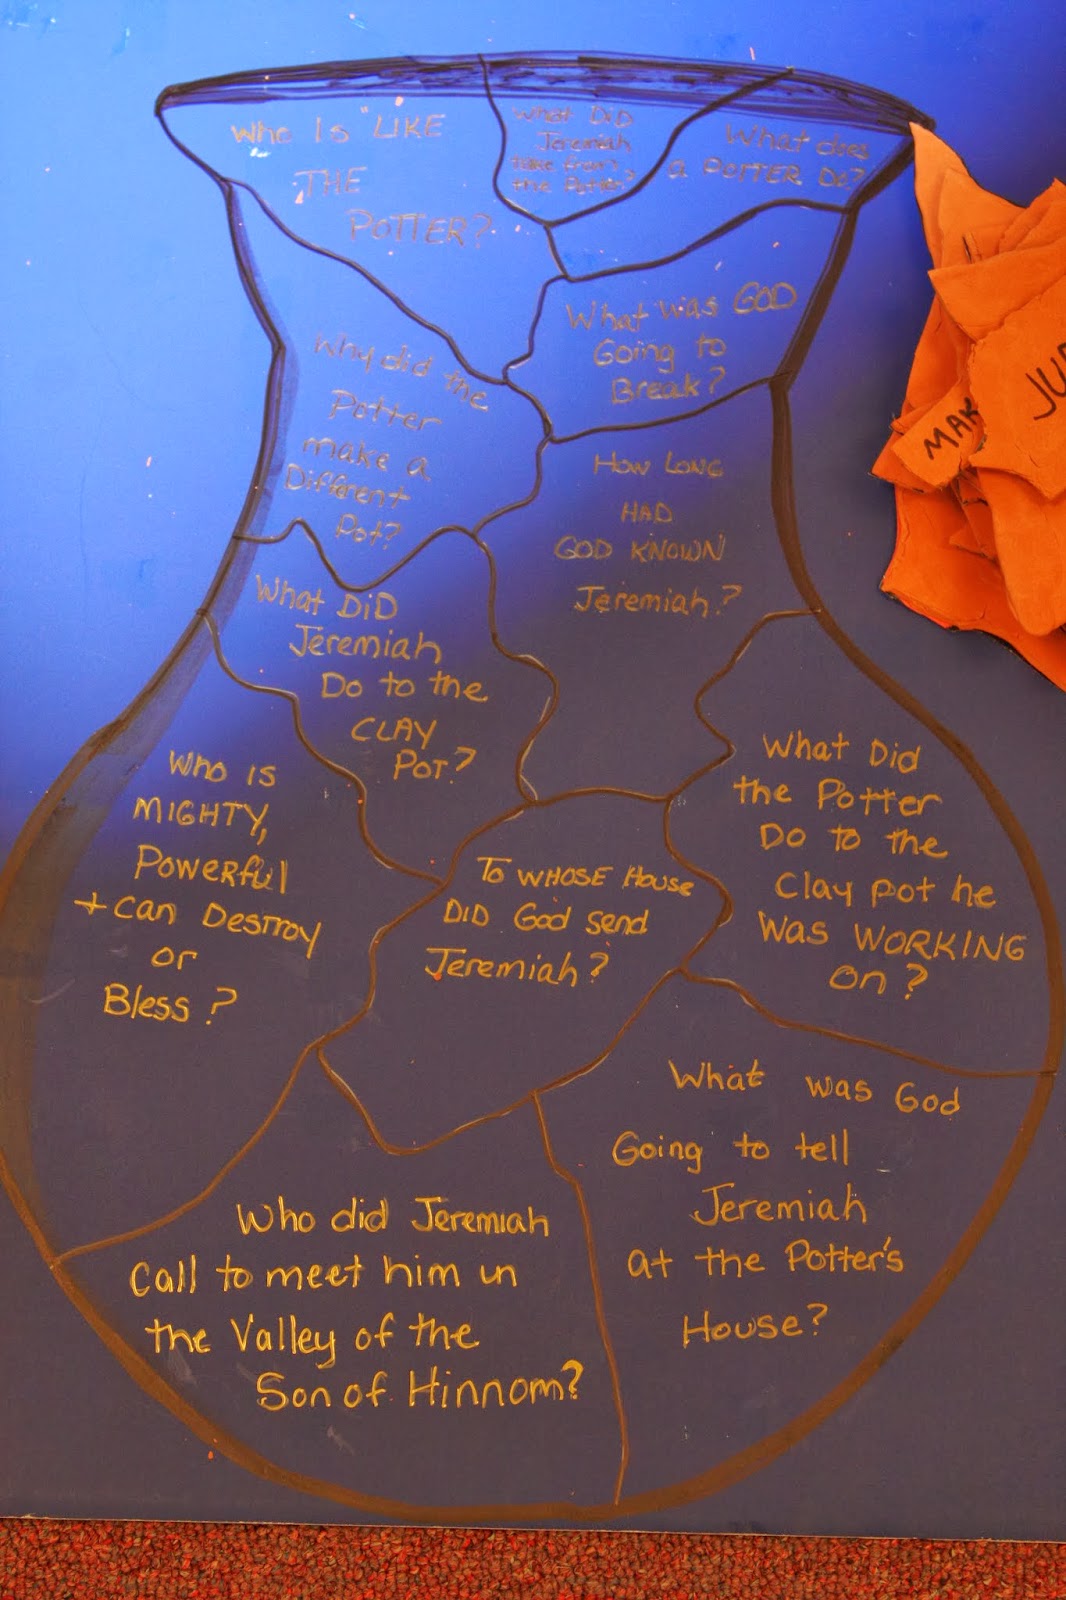 Who Is "LIKE
THE
POTTER?
What DiD
Jeremiah
take from
the Potter?
What does
a POTTER DO?
What was GOD
Going to
Break?
Why did the
Potter
make a
Different
Pot?
How LONG
HAD
GOD KNOWN
Jeremiah?
What DiD
Jeremiah
Do to the
CLAY
POT?
Who is
MIGHTY,
Powerful
+ Can Destroy
or
Bless?
To WHOSE House
DID God send
Jeremiah?
What Did
the Potter
Do to the
Clay pot he
Was WORKING
On?
What was God
Going to tell
Jeremiah
at the Potter's
House?
Who did Jeremiah
Call to meet him in
the Valley of the
Son of Hinnom?
MAK
JU